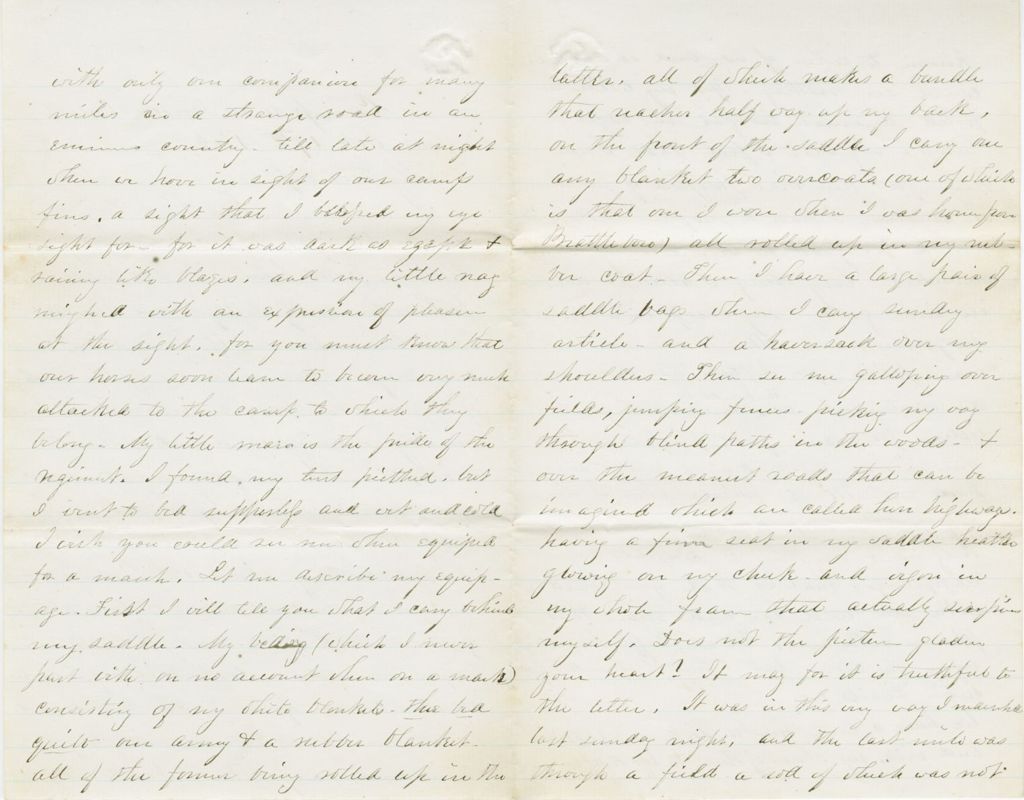 with only one companion for many
miles in a strange road in an
enimies country. till late at night
when we hove in sight of our camp
fires, a sight that I my eye
sight for - for it was dark as egypt &
raining like blazes, and my little nag
nighed with an expression of pleasure
at the sight. for you must know that
our horses soon learn to become very much
attached to the camp to which they
belong - My little mare is the pride of the
regiment. I found my tent pitched, but
I went to bed supperless and wet and cold
I wish you could see me when equiped
for a march. Let me describe my equip-
age. First I will tell you what I cary behind
my saddle. My beding (which I never
part with on no account when on a march)
consisting of my white blankets - bed
quilt one army & a rubber blanket -
all of the former being rolled up in the
latter. all of which makes a bundle
that reaches half way up my back,
on the front of the saddle I cary one
army blanket two overcoats (one of which
is that one I wore when I was home from
Brattleboro) all rolled up in my rub-
ber coat - Then I have a large pair of
saddle bags where I cary sundry
article - and a haversack over my
shoulders - Then see me galloping over
fields, jumping fences picking my way
through blind paths in the woods - &
over the meanest roads that can be
imagined which are called here highways.
having a firm seat in my saddle health
glowing on my cheek and vigor in
my whole fraim that actually surprises
myself. Does not the picture gladen
your heart? It may for it is truthful to
the letter. It was in this very way I marched
last sunday night, and the last mile was
through a field a sod of which was not